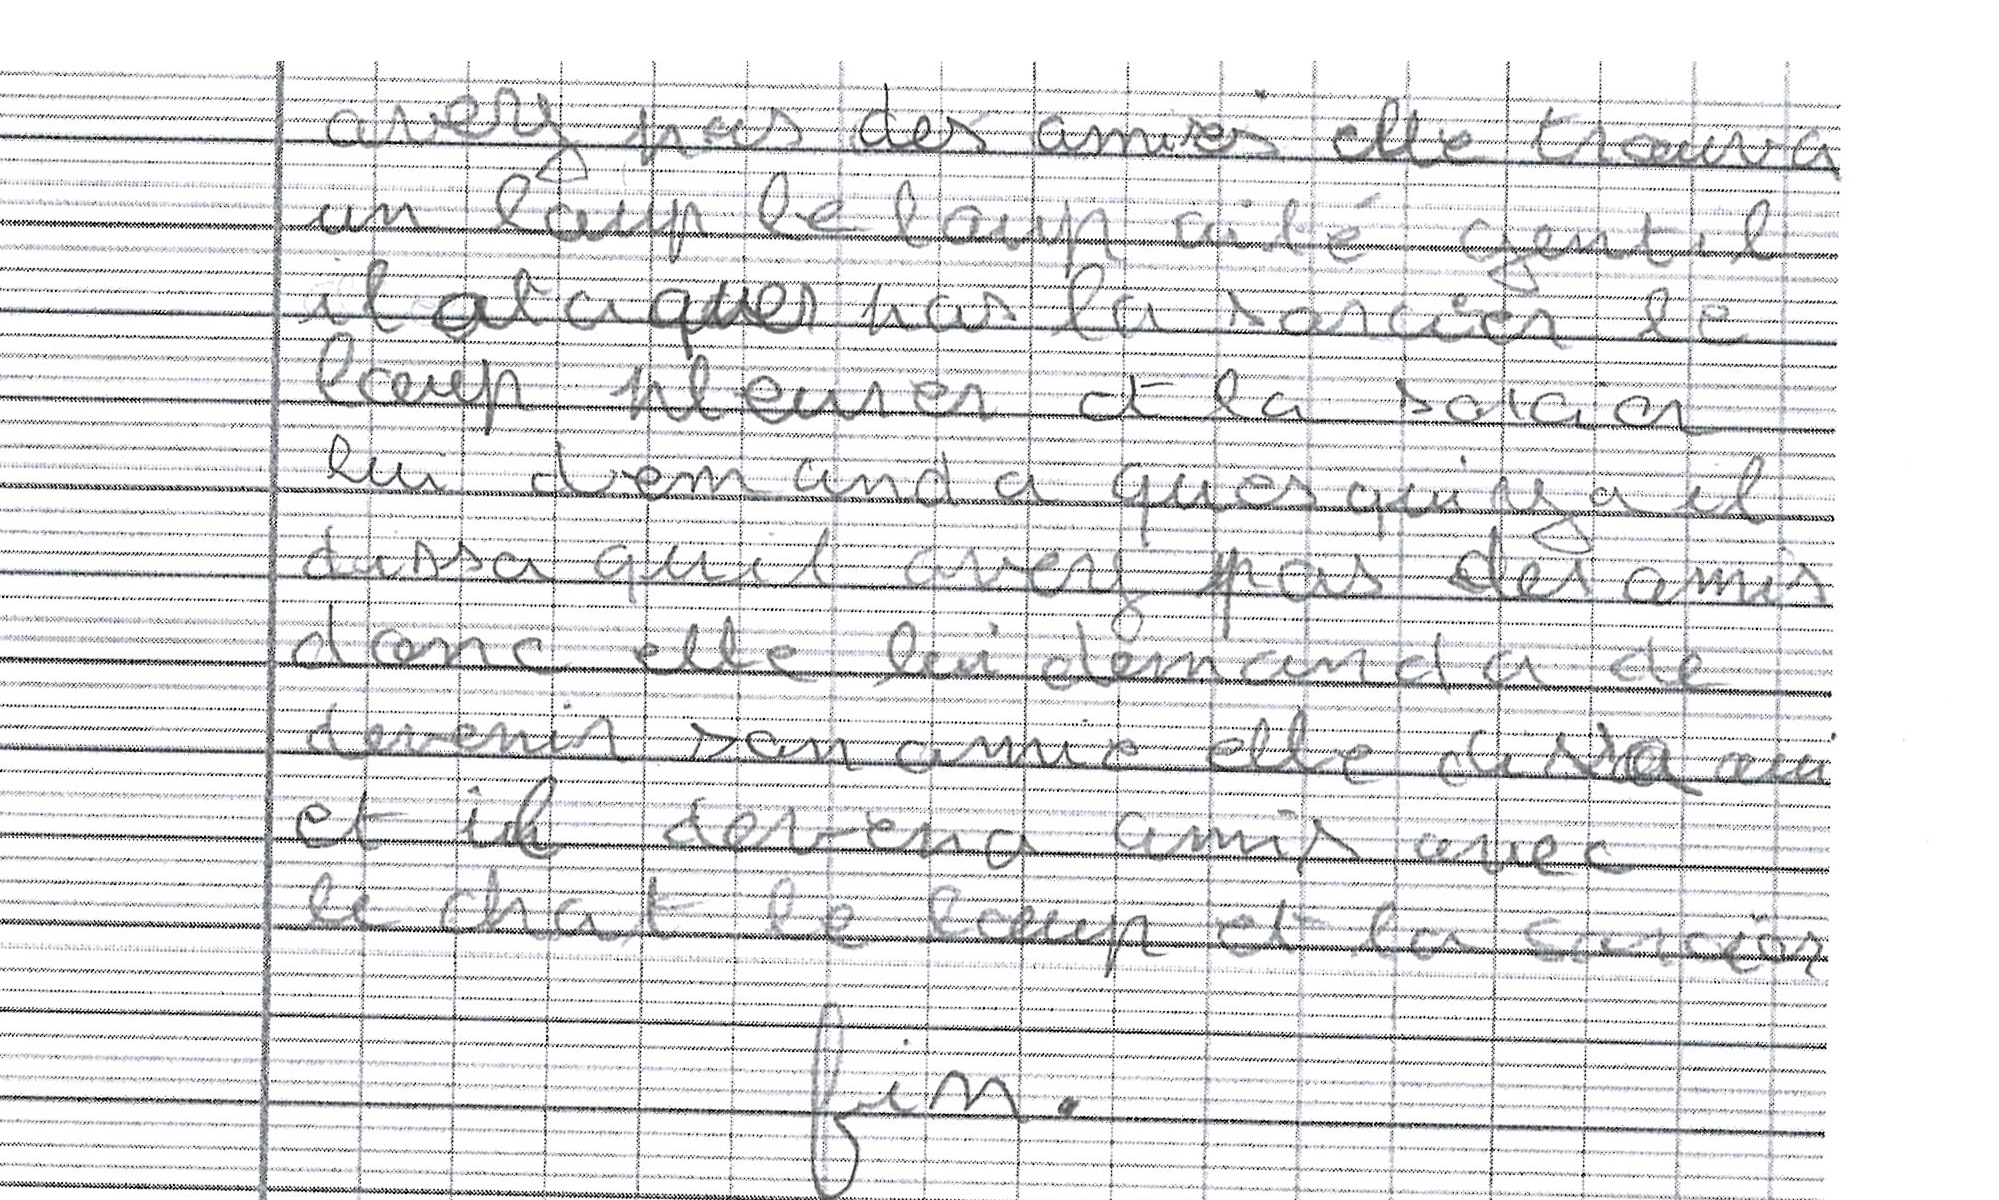 averz pas des amies elle trouva
un loup le loup aité gentil
il ataquer pas la sorcier le
loup pleurer et la sorcier
lui demanda quesquiya il
dissa quil averz pas des amis
donc elle lui demanda de
devenir son amie elle dissa oui
et il devena amis avec
le chat le loup et la sorcier
fin.